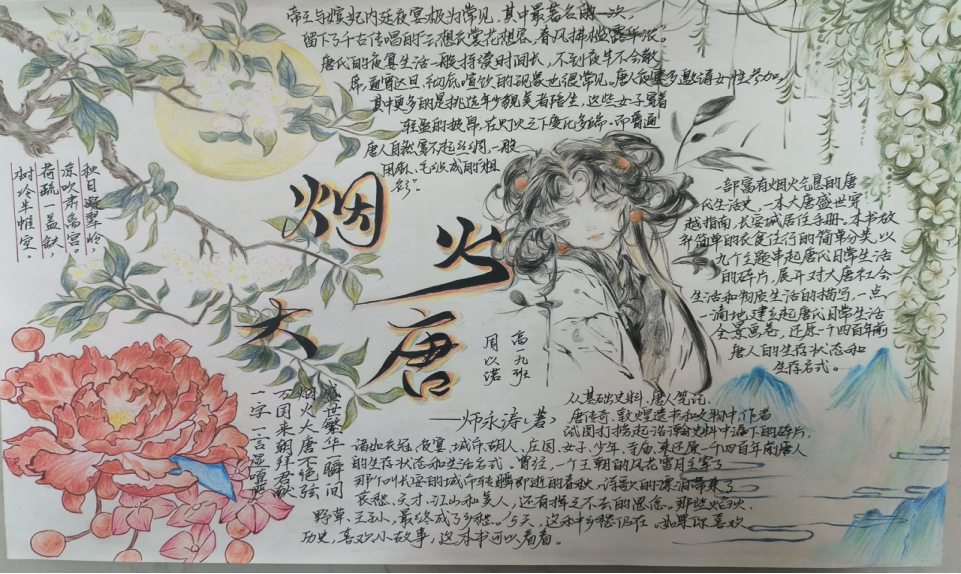 帝王与嫔妃内廷夜宴极为常见，其中最著名的一次，
留下了千古传唱的"云想衣裳花想容，春风拂槛露华浓。"
唐代的夜宴生活一般持续时间长，不到夜半不会散
席，通宵达旦，彻底喧饮的现象也很常见。唐人夜宴多邀请女性参加，
其中更多的是挑选年少貌美者陪坐，这些女子穿着
轻盈的披帛，在灯火之下变化多端。而普通
唐人自然穿不起丝绸，一般
用麻、毛织成的"粗
衫"。
秋日凝翠岭，
凉吹肃离宫。
荷疏一盖缺，
树冷半帷空。
烟火
大唐
高一九班
周以诺
——师永涛（著）
一部富有烟火气息的唐
代生活史，一本大唐盛世穿
越指南，长安城居住手册。本书放
弃简单的衣食住行的简单分类，以
九个主题串起唐代日常生活
的碎片，展开对大唐社会
生活和物质生活的描写，一点
一滴地建立起唐代日常生活
全景画卷，还原一千四百年前
唐人的生存状态和
生存名式。
盛世繁华一瞬间
烟火大唐不绝弦
万国来朝拜君献
一字一言湿喧
从基础史料、唐人笔记、
唐传奇、敦煌遗书和文物中，作者
试图打捞起沿着史料中漏下的碎片，
诸如衣冠、夜宴、城市、胡人、庄园、女子、少年、寺庙，来还原一千四百年前唐人
的生存状态和生活名式。曾经，一个王朝的风花雪月主宰了
那个叫长安的城市转瞬即逝的春秋，诗歌的漂泊带来了
哀愁、天才、江山和美人，还有挥之不去的思念。那些烟火、
野草、王孙，最终成了乡愁。今天，这种乡愁仍在，如果你喜欢
历史，喜欢小故事，这本书可以看看。